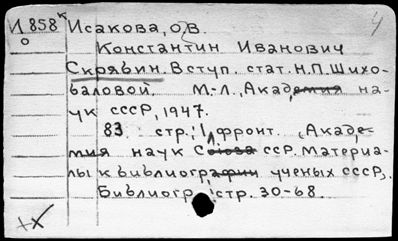 И 858 к Исакова, О.В.
о Константин Иванович
Скрябин. Вступ. стат. Н.П. Шихо-
баловой. М.-Л., Академия на-
ук СССР, 1947.
83 стр., 1 фронт. (Акаде-
мия наук Союза ССР. Материа-
лы к библиографии ученых СССР).
Библиогр. стр. 30-68.